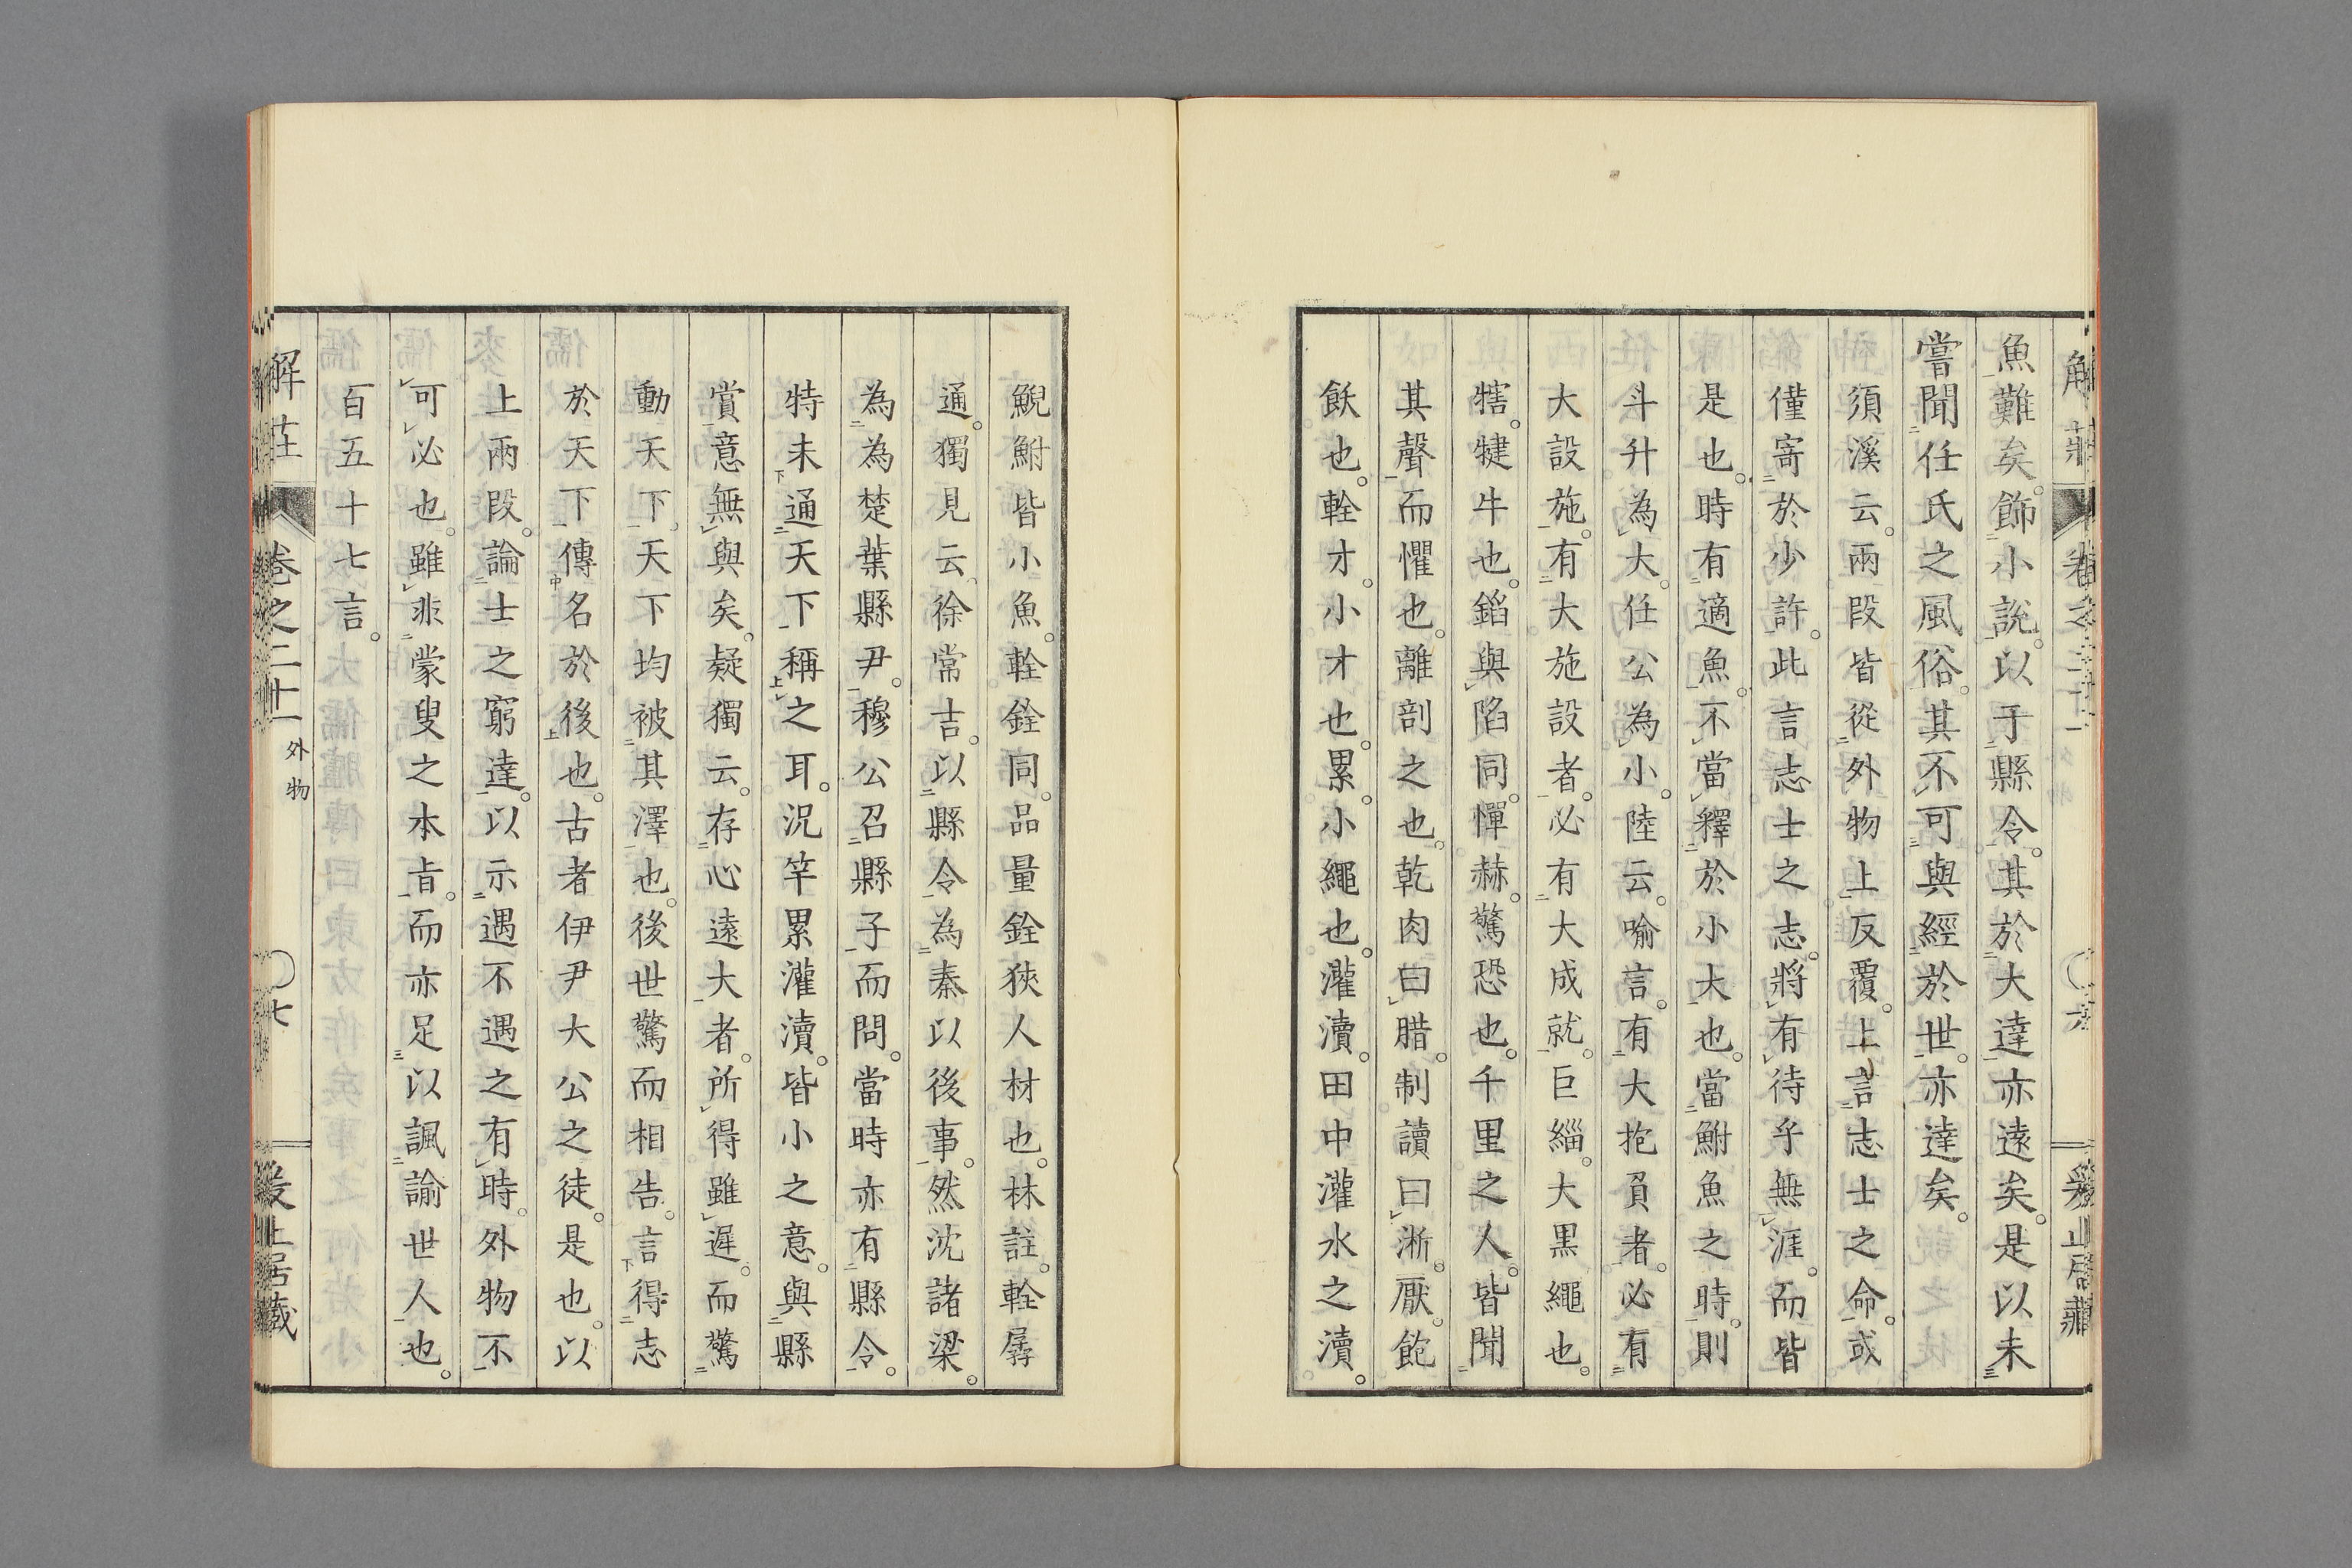 魚難矣。飾小說。以于縣令。其於大達亦遠矣。是以未
嘗聞任氏之風俗。其不可與經於世。亦達矣。
須溪云。兩段皆從外物上反覆。上言志士之命。或
僅寄於少許。此言志士之志。將有待乎無涯。而皆
是也。時有適魚。不當釋於小大也。當鮒魚之時。則
斗升為大。任公為小。陸云。喻言。有大抱負者。必有
大設施。有大施設者。必有大成就。巨緇。大黑繩也。
犗。犍牛也。錎與陷同。憚赫。驚恐也。千里之人。皆聞
其聲而懼也。離剖之也。乾肉曰腊。制讀曰淅。厭。飽
飫也。輇才。小才也。累。小繩也。灌瀆。田中灌水之瀆。
鯢鮒皆小魚。輇銓同。品量銓狹人材也。林註。輇孱
通。獨見云。徐常吉。以縣令為秦以後事。然沈諸梁。
為為楚葉縣尹。穆公召縣子而問。當時亦有縣令。
特未通天下稱之耳。況竿累灌瀆。皆小之意。與縣
賞意無與矣。疑獨云。存心遠大者。所得雖遲。而驚
動天下。天下均被其澤也。後世驚而相告。言得志
於天下傳名於後也。古者伊尹大公之徒。是也。以
上兩段。論士之窮達。以示遇不遇之有時。外物不
可必也。雖非蒙叟之本旨。而亦足以諷諭世人也。
百五十七言。
解莊
卷之二十一
外物
七